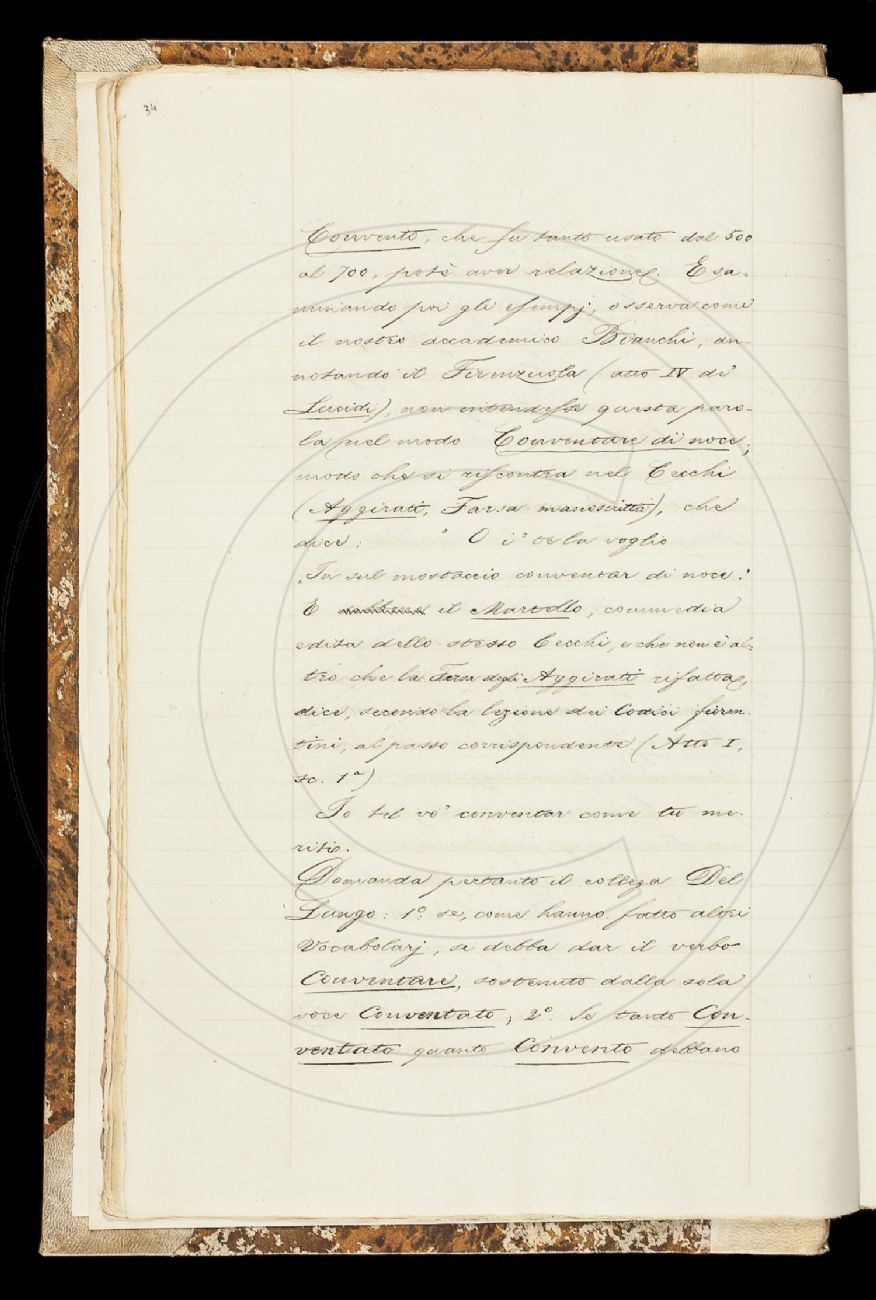 34
Convento, che fu tanto usato dal 500
al 700, potè aver relazione. Esa-
minando poi gli esempj, osserva come
il nostro accademico Bianchi, an-
notando il Firenzuola (atto IV dei
Lucidi), non intendesse questa paro-
la nel modo Conventare di noce;
modo che si riscontra nel Cecchi
(Aggirati, Farsa manoscritta), che
dice: " O i' te la voglio
"Tu sul mostaccio conventar di noce."
E il Martello, commedia
edita dello stesso Cecchi, e che non è al-
tro che la Farsa degli Aggirati rifatta,
dice, secondo la lezione dei Codici fioren-
tini, al passo corrispondente (Atto I,
sc. 1ª)
Io tel vo' conventar come tu me-
riti.
Domanda pertanto il collega Del
Lungo: 1º se, come hanno fatto altri
Vocabolarj, si debba dar il verbo
Conventare, sostenuto dalla sola
voce Conventato; 2º. Se tanto Con-
ventato quanto Convento debbano